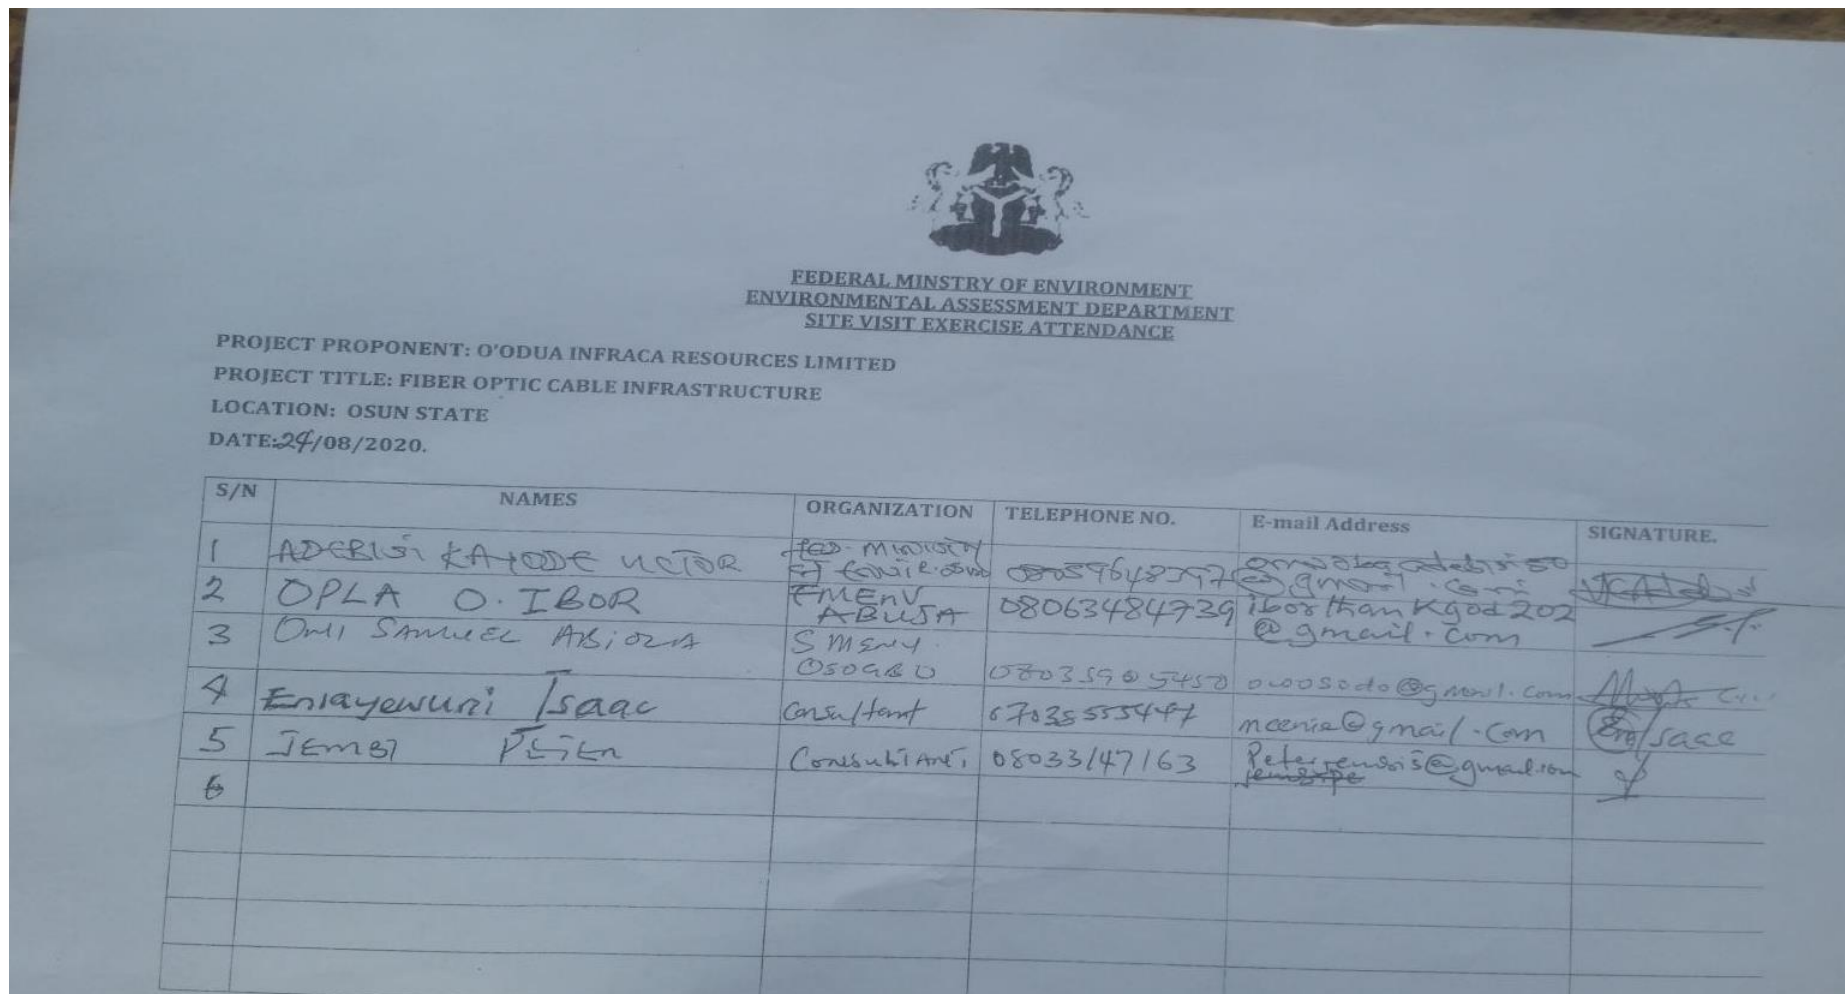 FEDERAL MINSTRY OF ENVIRONMENT
ENVIRONMENTAL ASSESSMENT DEPARTMENT
SITE VISIT EXERCISE ATTENDANCE
PROJECT PROPONENT: O'ODUA INFRACA RESOURCES LIMITED
PROJECT TITLE: FIBER OPTIC CABLE INFRASTRUCTURE
LOCATION: OSUN STATE
DATE:24/08/2020.
S/N NAMES ORGANIZATION TELEPHONE NO. E-mail Address SIGNATURE.
1 ADEBISI KAYODE VICTOR Fed. Ministry
of @gmail.com
2 OPLA O. IBOR FMENV 08063484739 iborthankgod202
ABUJA @gmail.com
3 OMI SAMUEL ABIOLA SMENV.
OSOGBO owosodo@gmail.com
4 Enlayewuni Isaac Consultant 07035555447 mcenia@gmail.com Isaac
5 JEMBI PETER Consultant 08033147163 @gmail.com
6